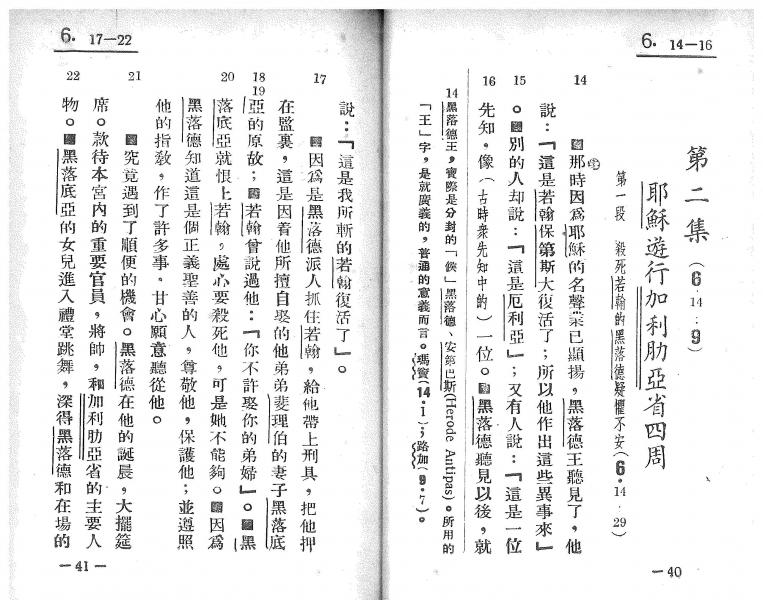 6. 14—16
第二集（6．14：9）
耶穌遊行加利肋亞省四周
第一段　殺死若翰的黑落德疑懼不安（6．14—29）
14
那時因爲耶穌的名聲業已顯揚，黑落德王聽見了，他
說：「這是若翰保第斯大復活了；所以他作出這些異事來」
15
。別的人却說：「這是厄利亞」；又有人說：「這是一位
16
先知，像（古時衆先知中的）一位。黑落德聽見以後，就
14 黑落德王，實際是分封的「侯」黑落德、安第巴斯(Herode Antipas)。所用的
「王」字，是就廣義的，普通的意義而言。瑪竇（14．1）；路加（9．7）。
—40
6. 17—22
說：「這是我所斬的若翰復活了」。
17
因爲是黑落德派人抓住若翰，給他帶上刑具，把他押
在監裏，這是因着他所擅自娶的他弟弟斐理伯的妻子黑落底
18
19
亞的原故；若翰曾說過他：「你不許娶你的弟婦」。黑
20
落底亞就恨上若翰，處心要殺死他，可是她不能夠。因爲
黑落德知道這是個正義聖善的人，尊敬他，保護他；並遵照
他的指敎，作了許多事，甘心願意聽從他。
21
究竟遇到了順便的機會。黑落德在他的誕晨，大擺筵
席。款待本宮內的重要官員，將帥，和加利肋亞省的主要人
22
物。黑落底亞的女兒進入禮堂跳舞，深得黑落德和在場的
—41—